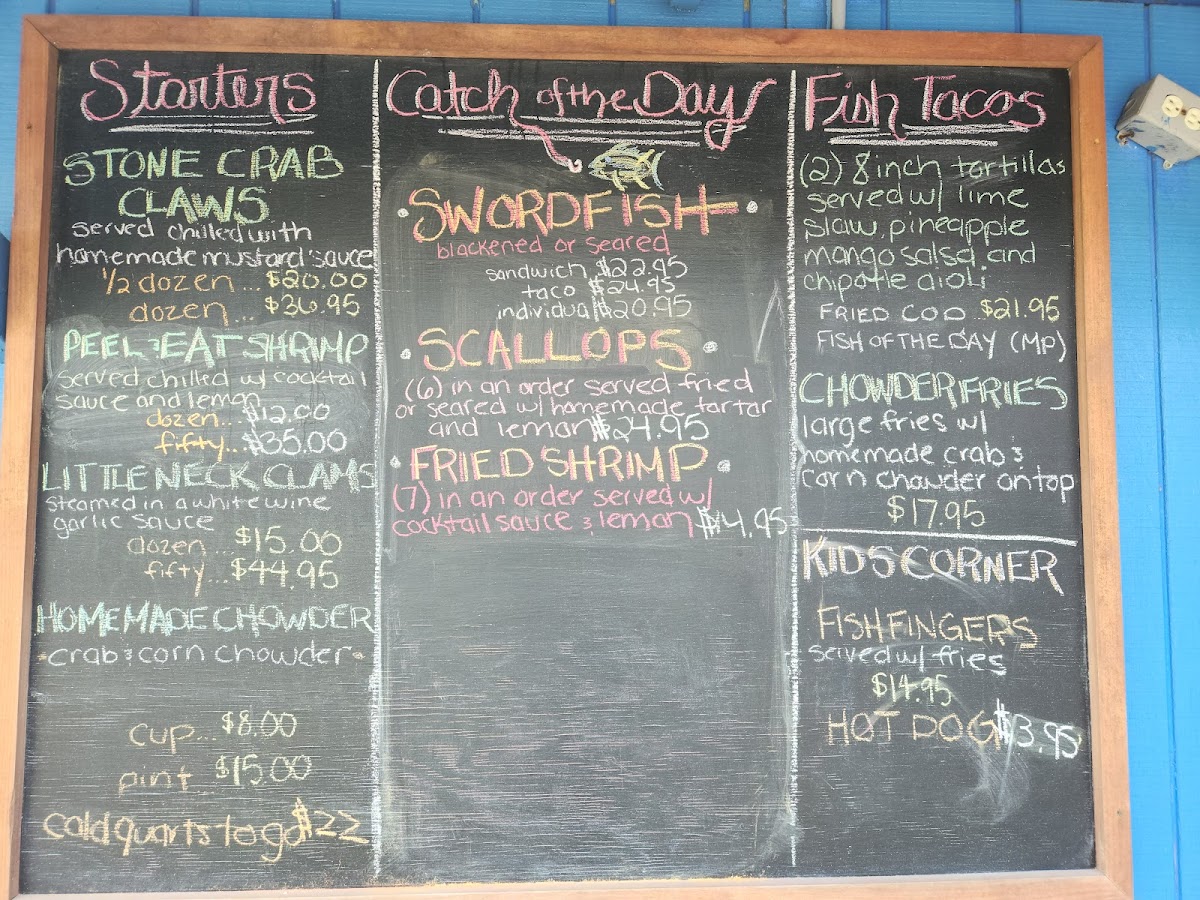 Starters
STONE CRAB
CLAWS
served chilled with
homemade mustard sauce
1/2 dozen ... $20.00
dozen ... $36.95
PEEL & EAT SHRIMP
served chilled w/ cocktail
sauce and lemon
dozen... $12.00
fifty... $35.00
LITTLE NECK CLAMS
steamed in a white wine
garlic sauce
dozen ... $15.00
fifty ... $44.95
HOMEMADE CHOWDER
-crab & corn chowder-
cup... $8.00
pint .. $15.00
cold quarts to go $22
Catch of the Day
• SWORDFISH •
blackened or seared
sandwich $22.95
taco $24.95
individual $20.95
• SCALLOPS •
(6) in an order served fried
or seared w/ homemade tartar
and lemon $24.95
• FRIED SHRIMP •
(7) in an order served w/
cocktail sauce & lemon $14.95
Fish Tacos
(2) 8 inch tortillas
served w/ lime
slaw, pineapple
mango salsa and
chipotle aioli
FRIED COD $21.95
FISH OF THE DAY (MP)
CHOWDER FRIES
large fries w/
homemade crab &
corn chowder on top
$17.95
KIDS CORNER
FISH FINGERS
served w/ fries
$14.95
HOT DOG $3.95